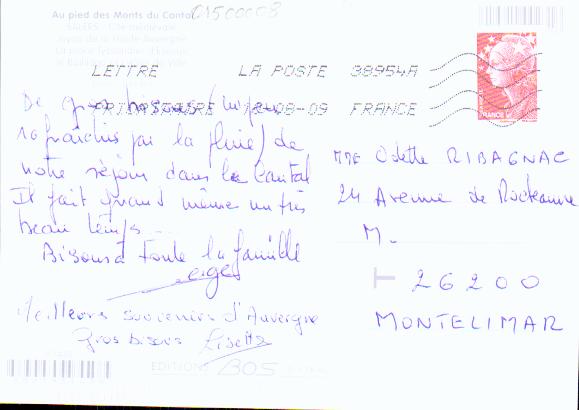 Au pied des Monts du Cantal
C1500008
SALERS - Cité médiévale
LETTRE LA POSTE 38954A
PRIORITAIRE 12-08-09 FRANCE
De gros bisous (un peu
rafraîchis par la pluie) de
notre séjour dans le Cantal
Il fait quand même un très
beau temps...
Bisous à toute la famille
Meilleurs souvenirs d'Auvergne
Gros bisous Lisette
EDITIONS BOS
MME Odette RIBAGNAC
24 Avenue de
M.
26200
MONTELIMAR